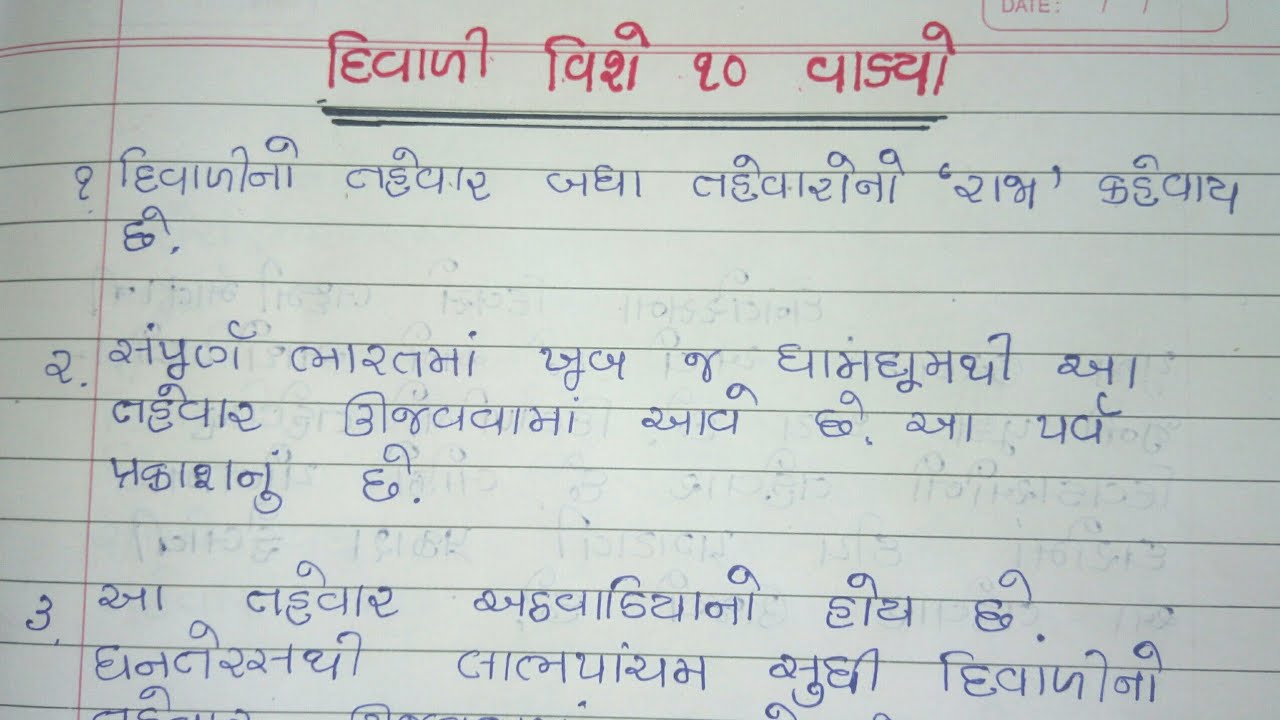 DATE: / /
દિવાળી વિશે ૧૦ વાક્યો
૧. દિવાળીનો તહેવાર બધા તહેવારોનો ‘રાજા’ કહેવાય
છે.
૨. સંપૂર્ણ ભારતમાં ખૂબ જ ધામધૂમથી આ
તહેવાર ઊજવવામાં આવે છે. આ પર્વ
પ્રકાશનું છે.
૩. આ તહેવાર અઠવાડિયાનો હોય છે.
ધનતેરસથી લાભપાંચમ સુધી દિવાળીનો
તહેવાર